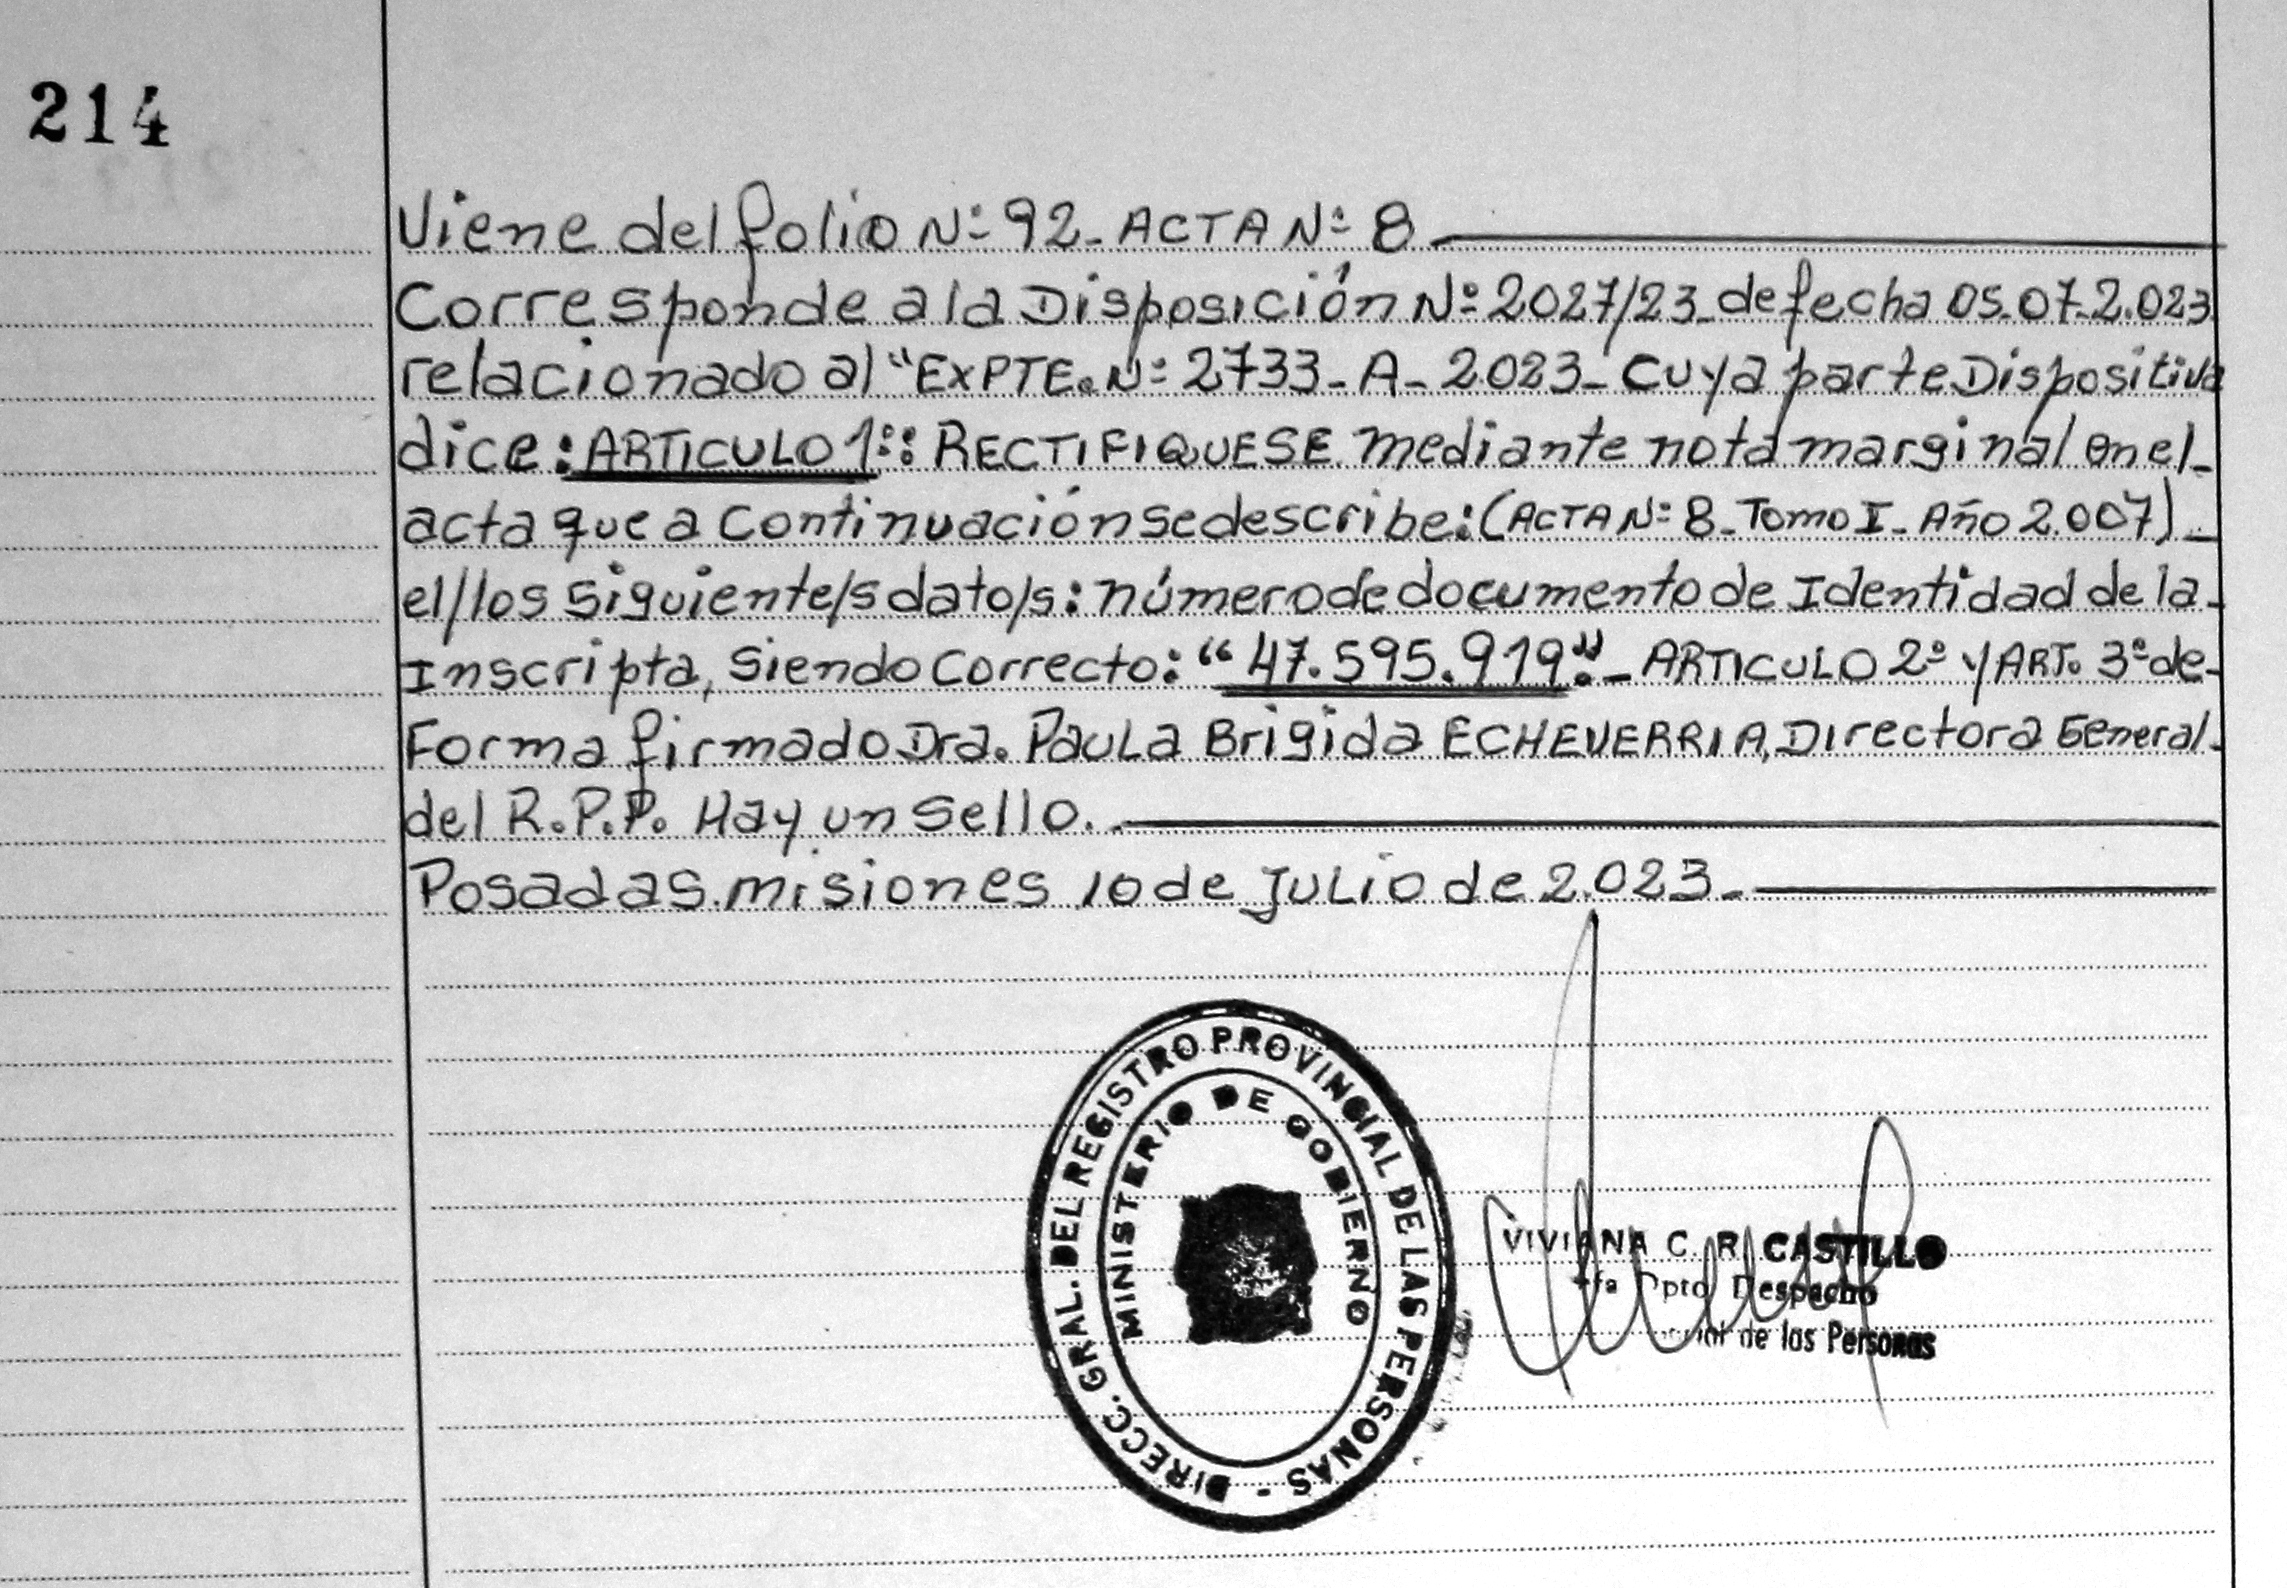 214
Viene del folio Nº 92_ ACTA Nº 8
Corresponde a la Disposición Nº 2027/23_ de fecha 05_07_2.023
relacionado al "EXPTE. Nº 2733_ A_ 2.023_ Cuya parte Dispositiva
dice: ARTICULO 1º: RECTIFIQUESE mediante nota marginal en el_
acta que a Continuación se describe: (ACTA Nº 8_ Tomo I_ Año 2.007)_
el/los siguiente/s dato/s: número de documento de Identidad de la_
Inscripta, siendo Correcto: "47.595.919"._ ARTICULO 2º y ART. 3º de_
Forma firmado Dra. Paula Brigida ECHEVERRIA, Directora General_
del R.P.P. Hay un Sello.
Posadas. misiones 10 de Julio de 2.023_
DIRECC. GRAL. DEL REGISTRO PROVINCIAL DE LAS PERSONAS -
MINISTERIO DE GOBIERNO
VIVIANA C. R. CASTILLO
Dpto Despacho
de las Personas